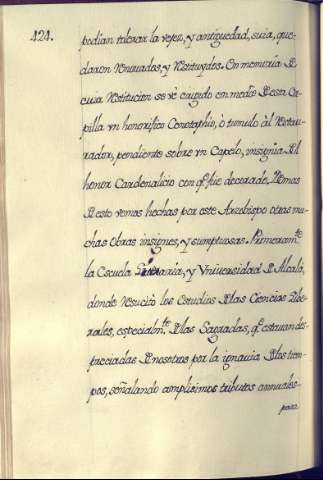 424.
podian tolerar la vejez, y antiguedad, suia, que-
daron renovadas, y restituydas. En memoria de
cuia restitucion se vè erigido en medio de essa Ca-
pilla un honorifico Cenotaphio, ò tumulo al restau-
rador, pendiente sobre un Capelo, insignia del
honor Cardenalicio con q.e fue decorado. Demas
de esto vemos hechas por este Arzobispo otras mu-
chas obras insignes, y sumptuosas. Primeram.te
la Escuela y Universidad de Alcalà,
donde resucitò los Estudios de las Ciencias Libe-
rales, especialm.te de las Sagradas, q.e estavan des-
preciadas de nosotros por la ignavia de los tiem-
pos, señalando amplisimos tributos annuales
para